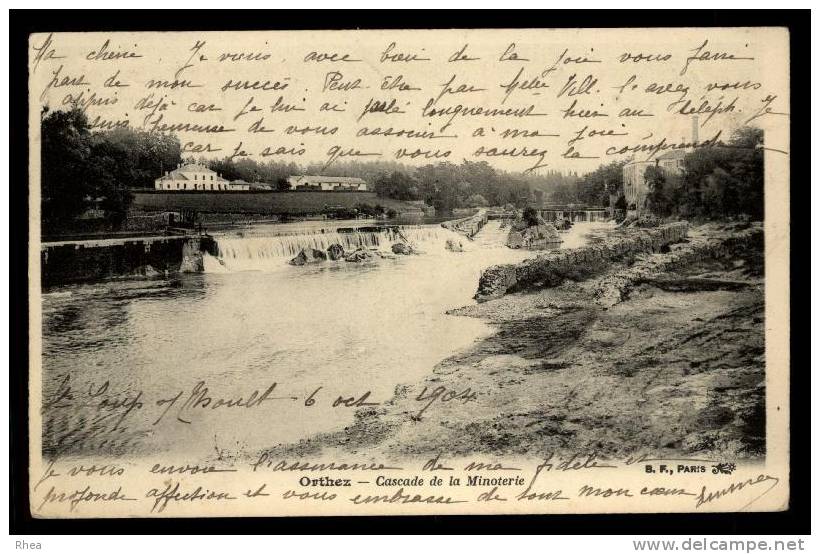 Ma chérie, Je viens avec bien de la joie vous faire
part de mon succès. Peut-être par Melle Vill. l'avez vous
appris déjà car je lui ai parlé longuement hier au téléph. Je
suis heureuse de vous associer à ma joie
car je sais que vous saurez la comprendre
St Loup s/ Thoult 6 oct 1904
Je vous envoie l'assurance de ma fidèle et
B. F., PARIS
Orthez — Cascade de la Minoterie
profonde affection et vous embrasse de tout mon cœur
Rhea
http://www.delcampe.net